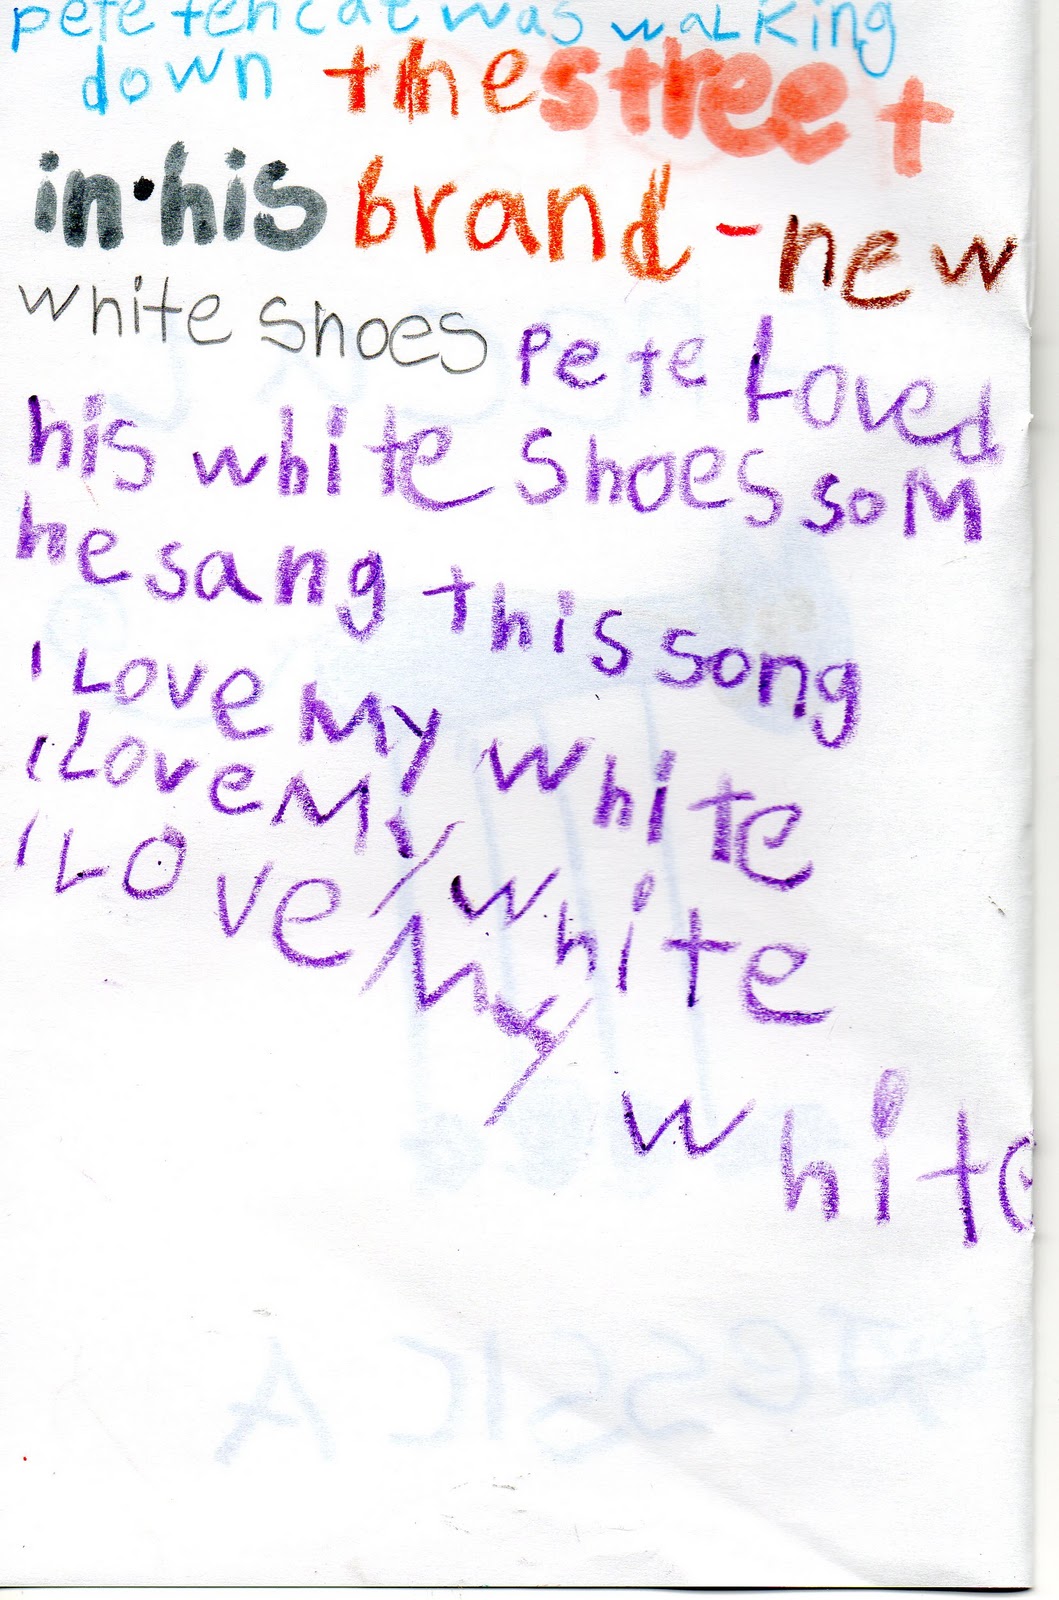 pete tehcat was walking
down thestreet
in.his brand-new
white shoes pete Loved
his white shoes so M
he sang this song
I Love My white
I Love My white
I Love My white
JESSICA